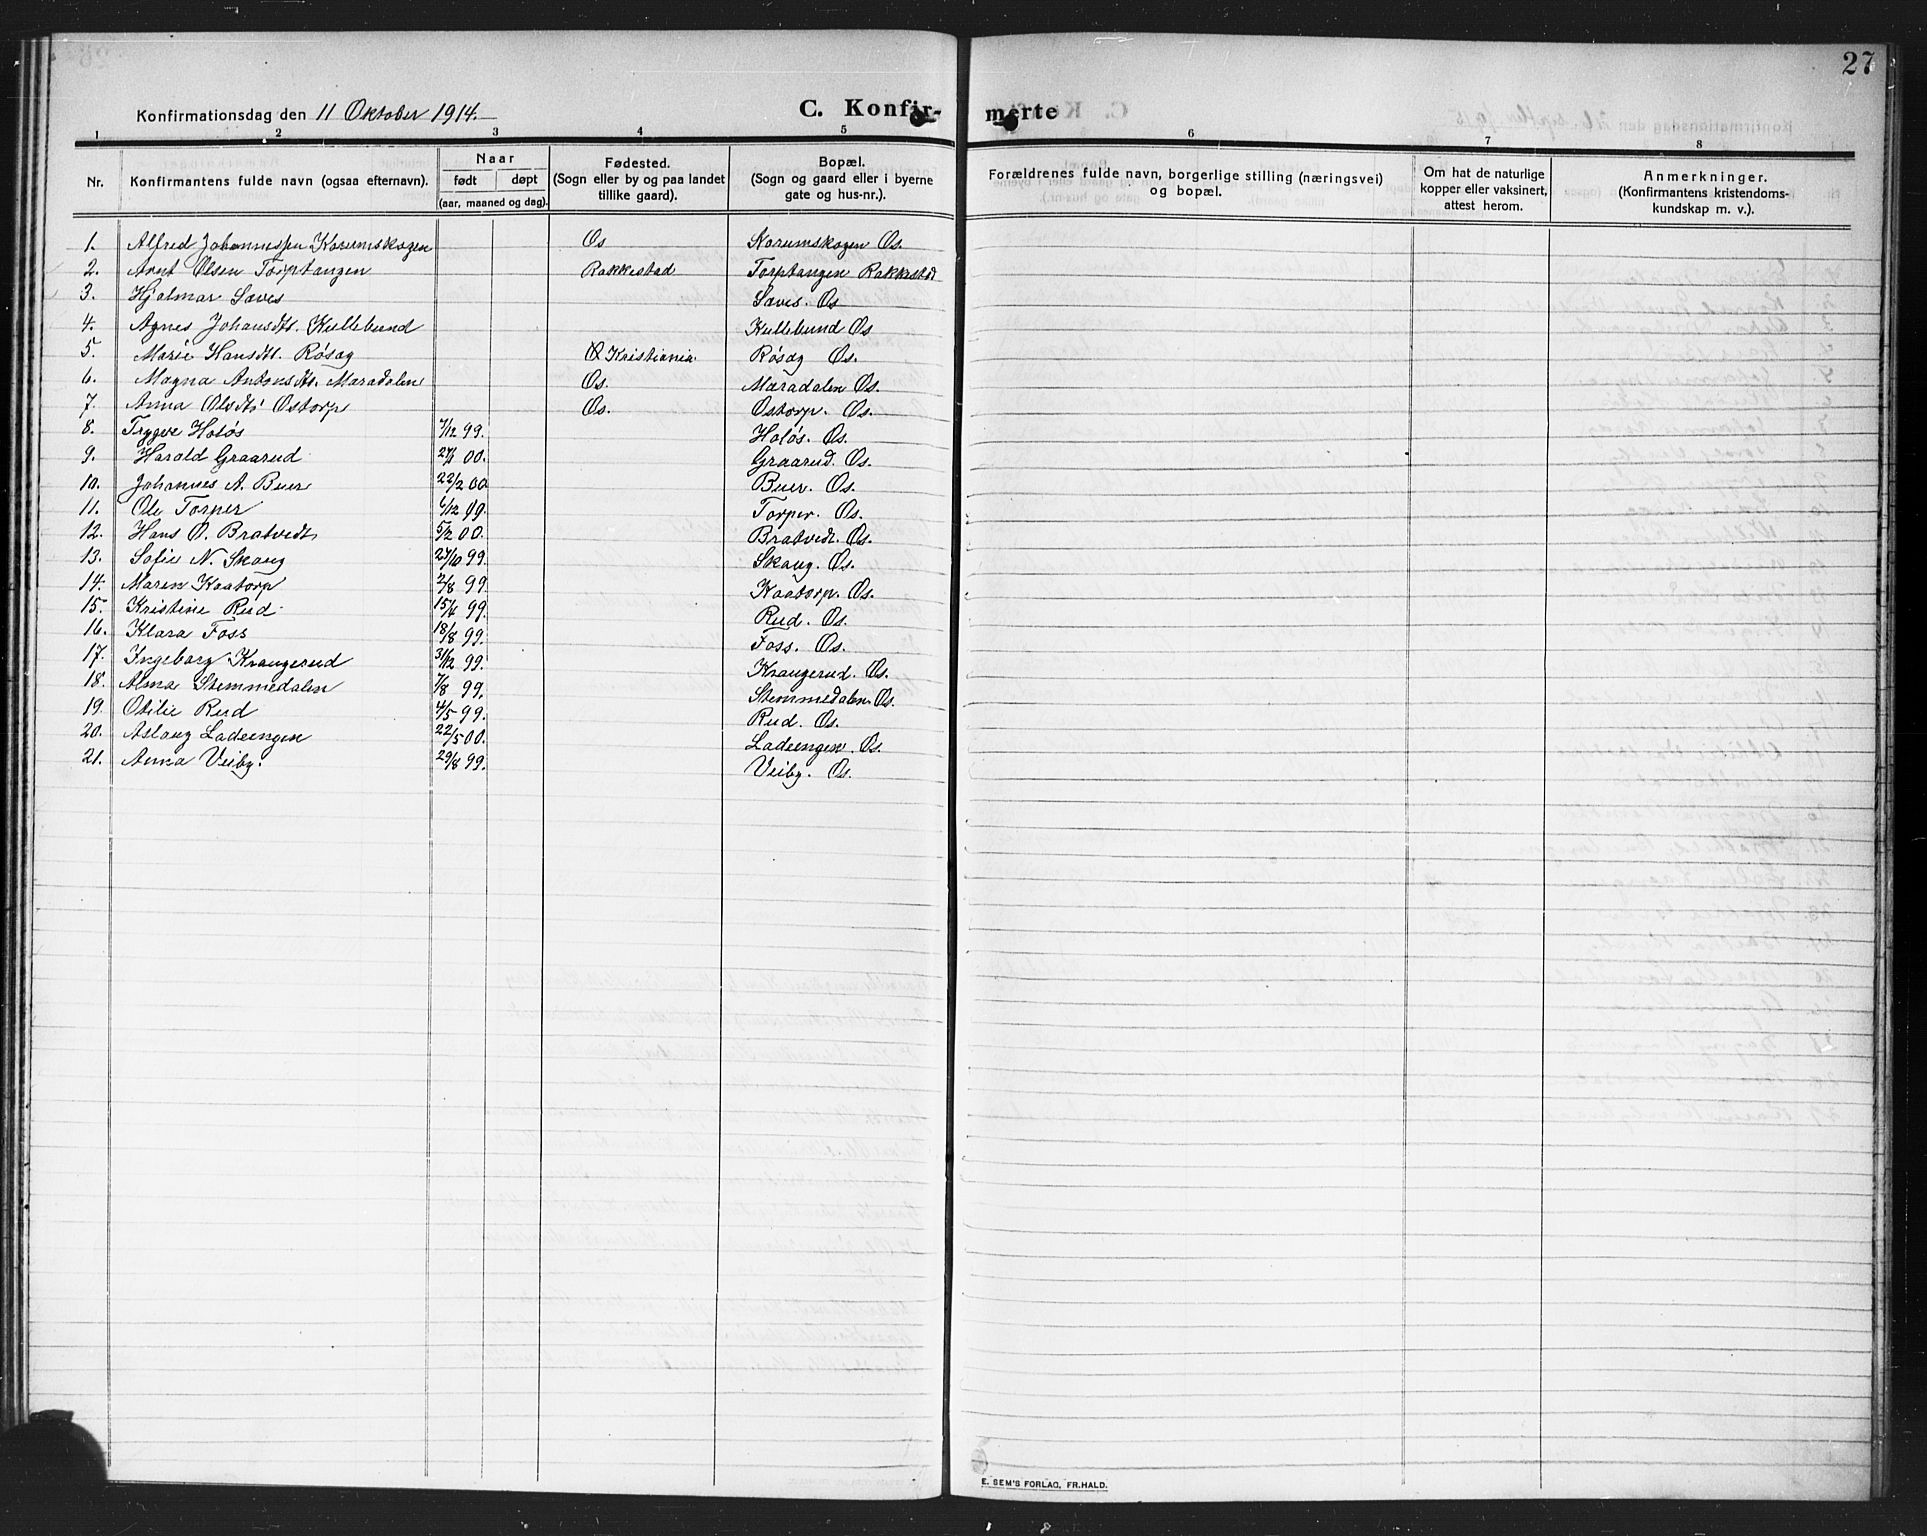 27
Konfirmationsdag den 11 Oktober 1914.
C. Konfir- merte
1 2 3 4 5 6 7 8
Nr. Konfirmantens fulde navn (ogsaa efternavn). Naar født døpt (aar, maaned og dag). Fødested. (Sogn eller by og paa landet tillike gaard). Bopæl. (Sogn og gaard eller i byerne gate og hus-nr.). Forældrenes fulde navn, borgerlige stilling (næringsvei) og bopæl. Om hat de naturlige kopper eller vaksinert, attest herom. Anmerkninger. (Konfirmantens kristendoms- kundskap m. v.).
1. Alfred Johannessen Korumskogen Os Korumskogen Os.
2. Arnt Olsen Torptangen Rakkestad Torptangen Rakkestad
3. Hjalmar Saves Saves. Os
4. Agnes Johansdt. Kullebund Kullebund Os.
5. Marie Hansdt. Røsæg Kristiania. Røsæg Os.
6. Magna Antonsdt. Maradalen Os. Maradalen Os.
7. Anna Olsdt. Østorp Os. Østorp. Os.
8. Trygve Holøs 7/12 99. Holøs. Os.
9. Harald Graarud 27/1 00. Graarud. Os.
10. Johannes A. Buer 22/2 00 Buer. Os.
11. Ole Torper 6/12 99. Torper. Os.
12. Hans O. Bratvedt 5/2 00. Bratvedt. Os.
13. Sofie N. Skaug 27/10 99. Skaug. Os.
14. Maren Kaatorp 2/8 99. Kaatorp. Os.
15. Kristine Rud 15/6 99. Rud. Os.
16. Klara Foss 18/8 99. Foss. Os.
17. Ingeborg Krangerud 31/12 99. Krangerud. Os.
18. Alma Stemmedalen 7/8 99. Stemmedalen. Os.
19. Otilie Rud 4/5 99. Rud. Os.
20. Aslaug Ladeengen 22/5 00. Ladeengen. Os.
21. Anna Veiby. 29/8 99. Veiby. Os.
E. SEM'S FORLAG, FR.HALD.